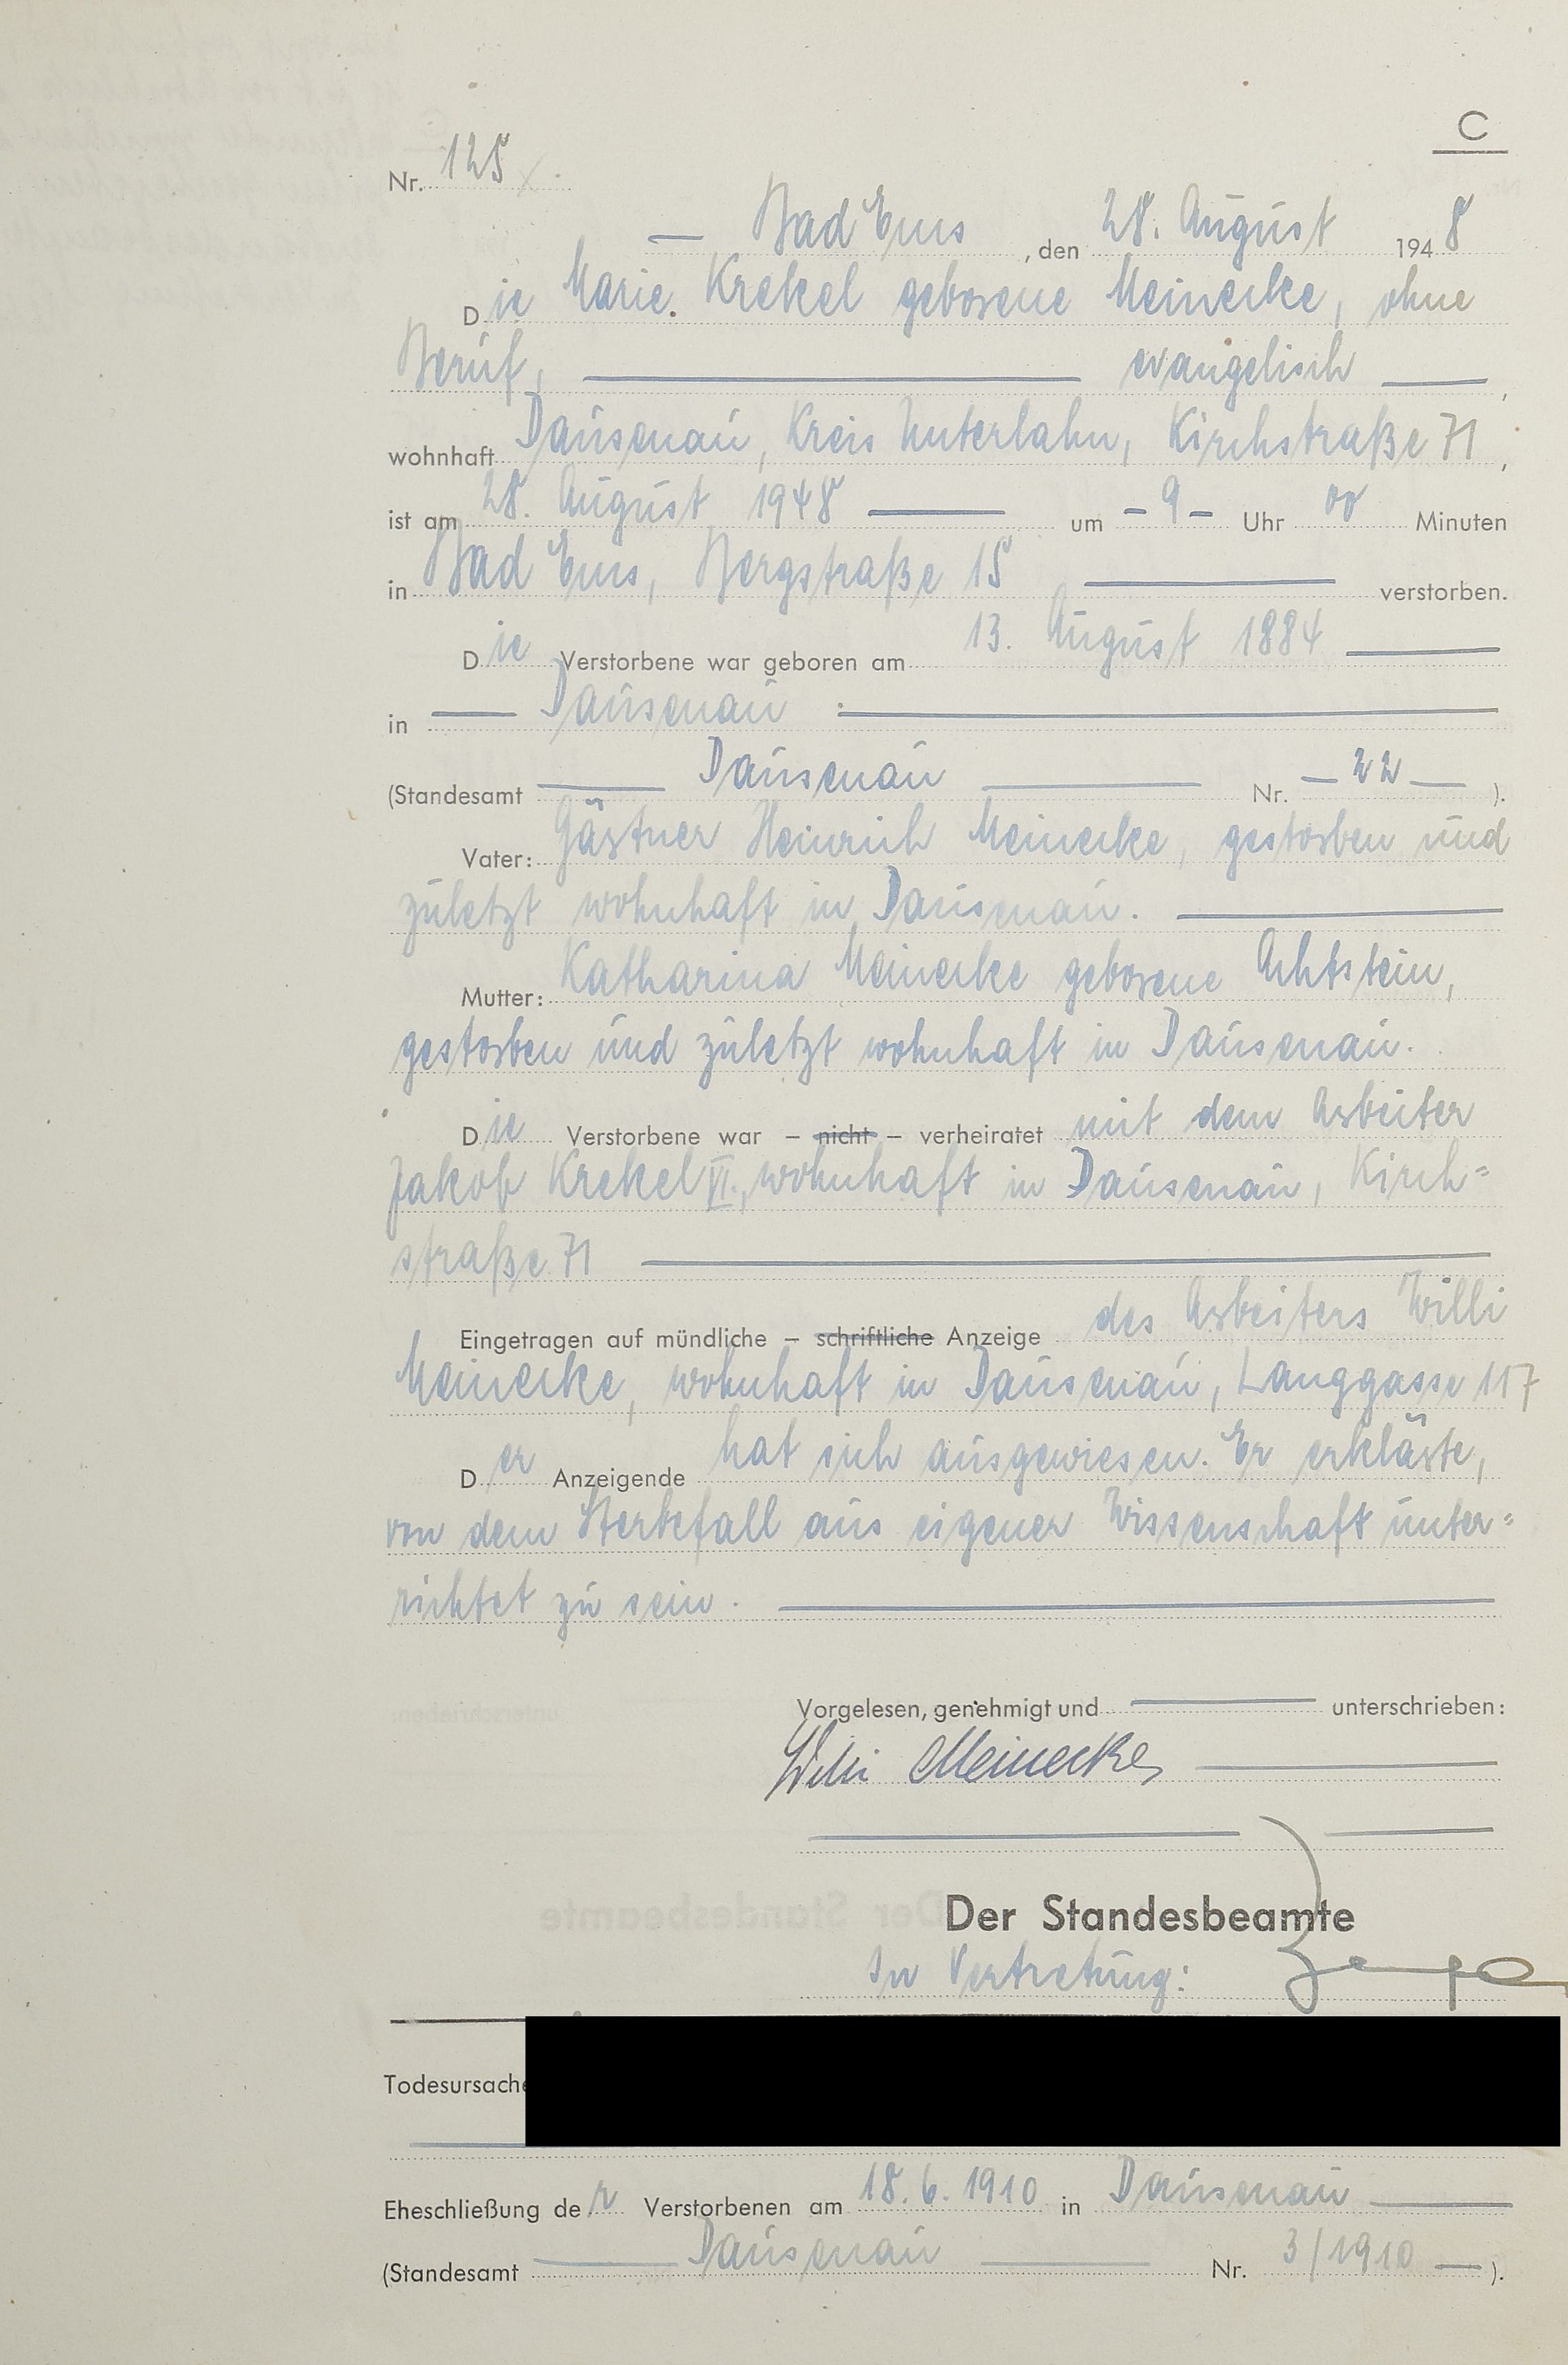 C
Nr. 125
Bad Ems, den 28. August 1948
Die Marie Krekel geborene Meinecke, ohne
Beruf, evangelisch,
wohnhaft Dausenau, Kreis Unterlahn, Kirchstraße 71,
ist am 28. August 1948 um - 9 - Uhr 00 Minuten
in Bad Ems, Bergstraße 15 verstorben.
Die Verstorbene war geboren am 13. August 1884
in Dausenau
(Standesamt Dausenau Nr. 22 ).
Vater: Gärtner Heinrich Meinecke, gestorben und
zuletzt wohnhaft in Dausenau.
Mutter: Katharina Meinecke geborene Achtstein,
gestorben und zuletzt wohnhaft in Dausenau.
Die Verstorbene war – nicht – verheiratet mit dem Arbeiter
Jakob Krekel VI., wohnhaft in Dausenau, Kirch=
straße 71
Eingetragen auf mündliche – schriftliche Anzeige des Arbeiters Willi
Meinecke, wohnhaft in Dausenau, Langgasse 117
Der Anzeigende hat sich ausgewiesen. Er erklärte,
von dem Sterbefall aus eigener Wissenschaft unter=
richtet zu sein.
Vorgelesen, genehmigt und unterschrieben:
Willi Meinecke
Der Standesbeamte
In Vertretung:
Todesursache
Eheschließung der Verstorbenen am 18.6.1910 in Dausenau
(Standesamt Dausenau Nr. 3/1910 ).